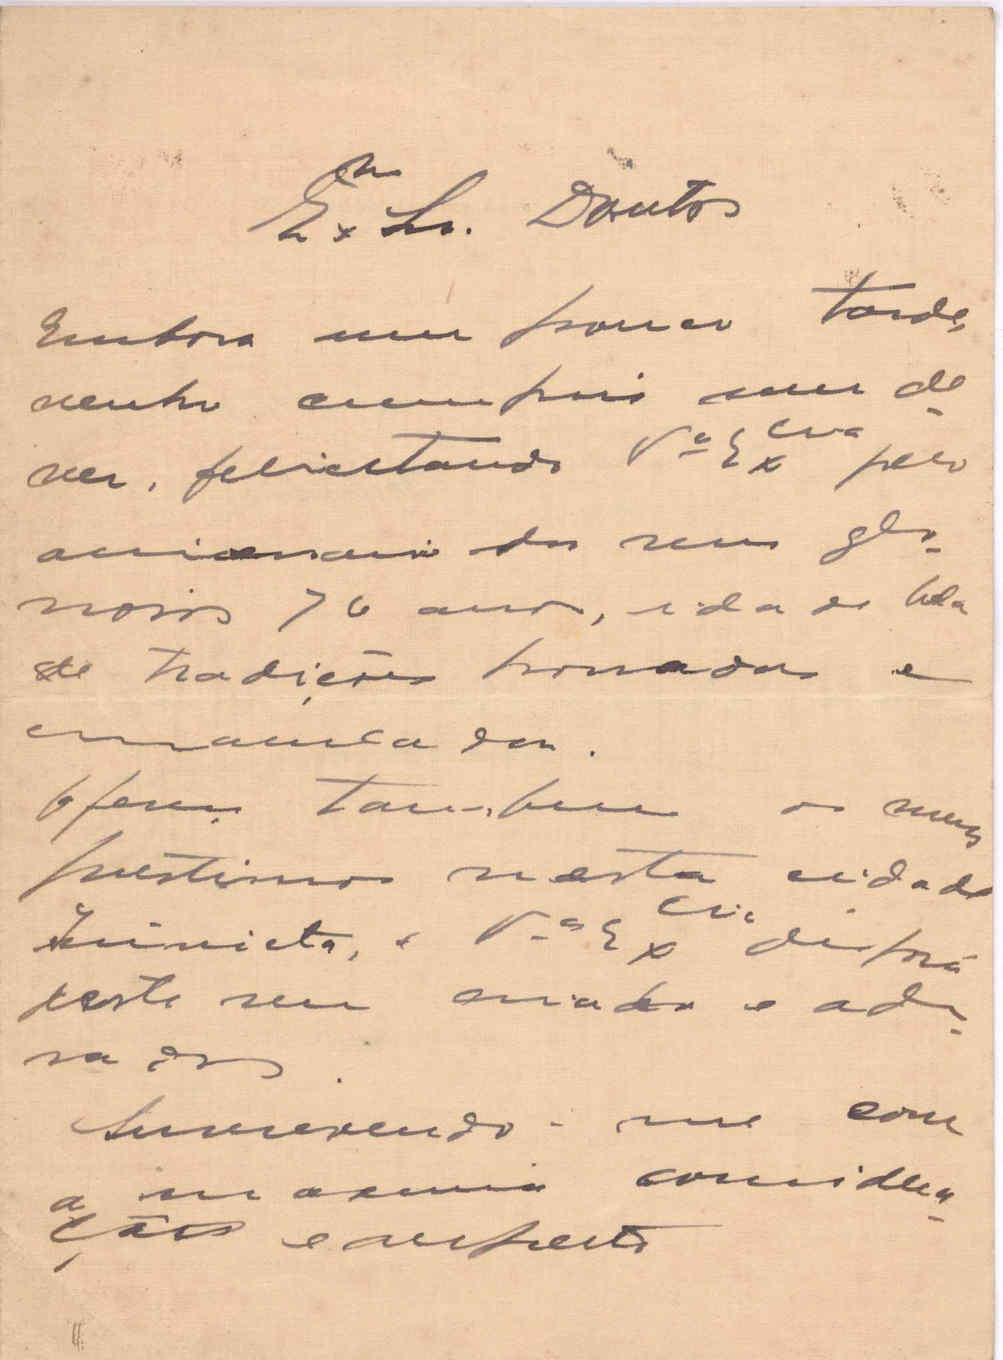 Exmo Sr. Doutor
Embora um pouco tarde,
venho cumprir um de-
ver, felicitando V.ª Excia pelo
aniversario dos seus glo-
riosos 76 anos, vida de
de tradições honradas e
immaculadas.
Ofereço tambem os meus
prestimos nesta cidade
invicta, e V.ª Excia disporá
deste seu criado e
Subscrevendo-me com
a maxima considera-
ção e respeito